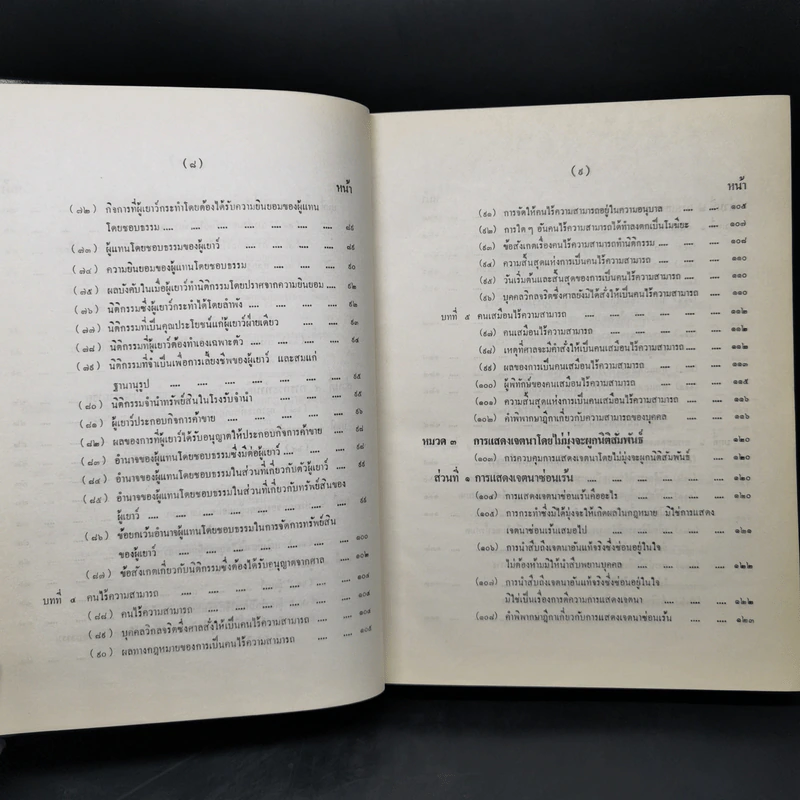 (๘)
หน้า
(๗๒) กิจการที่ผู้เยาว์กระทำโดยต้องได้รับความยินยอมของผู้แทน
โดยชอบธรรม .... .... .... .... .... .... ๘๙
(๗๓) ผู้แทนโดยชอบธรรมของผู้เยาว์ .... .... .... ๘๙
(๗๔) ความยินยอมของผู้แทนโดยชอบธรรม .... .... ๙๐
(๗๕) ผลบังคับในเมื่อผู้เยาว์ทำนิติกรรมโดยปราศจากความยินยอม .... ๙๒
(๗๖) นิติกรรมซึ่งผู้เยาว์กระทำได้โดยลำพัง .... .... .... ๙๓
(๗๗) นิติกรรมที่เป็นคุณประโยชน์แก่ผู้เยาว์ฝ่ายเดียว .... .... ๙๓
(๗๘) นิติกรรมที่ผู้เยาว์ต้องทำเองเฉพาะตัว .... .... .... ๙๔
(๗๙) นิติกรรมที่จำเป็นเพื่อการเลี้ยงชีพของผู้เยาว์ และสมแก่
ฐานานุรูป .... .... .... .... .... .... ๙๕
(๘๐) นิติกรรมจำนำทรัพย์สินในโรงรับจำนำ .... .... .... ๙๕
(๘๑) ผู้เยาว์ประกอบกิจการค้าขาย .... .... .... ....
(๘๒) ผลของการที่ผู้เยาว์ได้รับอนุญาตให้ประกอบกิจการค้าขาย .... ....
(๘๓) อำนาจของผู้แทนโดยชอบธรรมซึ่งมีต่อผู้เยาว์ .... .... ....
(๘๔) อำนาจของผู้แทนโดยชอบธรรมในส่วนที่เกี่ยวกับตัวผู้เยาว์ ....
(๘๕) อำนาจของผู้แทนโดยชอบธรรมในส่วนที่เกี่ยวกับทรัพย์สินของ
ผู้เยาว์ .... .... .... .... .... .... .... ๙๙
(๘๖) ข้อยกเว้นอำนาจผู้แทนโดยชอบธรรมในการจัดการทรัพย์สิน
ของผู้เยาว์ .... .... .... .... .... .... ๑๐๐
(๘๗) ข้อสังเกตเกี่ยวกับนิติกรรมซึ่งต้องได้รับอนุญาตจากศาล .... ๑๐๒
บทที่ ๔ คนไร้ความสามารถ .... .... .... .... .... .... ๑๐๔
(๘๘) คนไร้ความสามารถ .... .... .... .... .... ๑๐๔
(๘๙) บุคคลวิกลจริตซึ่งศาลสั่งให้เป็นคนไร้ความสามารถ .... .... ๑๐๔
(๙๐) ผลทางกฎหมายของการเป็นคนไร้ความสามารถ .... .... ๑๐๕
(๙)
หน้า
(๙๑) การจัดให้คนไร้ความสามารถอยู่ในความอนุบาล .... .... ๑๐๕
(๙๒) การใด ๆ อันคนไร้ความสามารถได้ทำลงตกเป็นโมฆียะ .... .... ๑๐๗
(๙๓) ข้อสังเกตเรื่องคนไร้ความสามารถทำนิติกรรม .... .... ๑๐๘
(๙๔) ความสิ้นสุดแห่งการเป็นคนไร้ความสามารถ .... .... .... ๑๑๐
(๙๕) วันเริ่มต้นและสิ้นสุดของการเป็นคนไร้ความสามารถ .... .... ๑๑๐
(๙๖) บุคคลวิกลจริตซึ่งศาลยังมิได้สั่งให้เป็นคนไร้ความสามารถ .... .... ๑๑๐
บทที่ ๕ คนเสมือนไร้ความสามารถ .... .... .... .... .... ๑๑๒
(๙๗) คนเสมือนไร้ความสามารถ .... .... .... .... ๑๑๒
(๙๘) เหตุที่ศาลจะมีคำสั่งให้เป็นคนเสมือนไร้ความสามารถ .... .... ๑๑๒
(๙๙) ผลของการเป็นคนเสมือนไร้ความสามารถ .... .... .... ๑๑๓
(๑๐๐) ผู้พิทักษ์ของคนเสมือนไร้ความสามารถ .... .... .... ๑๑๕
(๑๐๑) ความสิ้นสุดแห่งการเป็นคนเสมือนไร้ความสามารถ .... .... ๑๑๖
(๑๐๒) คำพิพากษาฎีกาเกี่ยวกับความสามารถของบุคคล .... .... ๑๑๖
หมวด ๓ การแสดงเจตนาโดยไม่มุ่งจะผูกนิติสัมพันธ์ .... .... .... ๑๒๐
(๑๐๓) การควบคุมการแสดงเจตนาโดยไม่มุ่งจะผูกนิติสัมพันธ์ .... .... ๑๒๐
ส่วนที่ ๑ การแสดงเจตนาซ่อนเร้น .... .... .... .... .... ๑๒๐
(๑๐๔) การแสดงเจตนาซ่อนเร้นคืออะไร .... .... .... .... ๑๒๐
(๑๐๕) การกระทำซึ่งมิมุ่งจะให้เกิดผลในกฎหมาย มิใช่การแสดง
เจตนาซ่อนเร้นเสมอไป .... .... .... .... .... ๑๒๑
(๑๐๖) การนำสืบถึงเจตนาอันแท้จริงซึ่งซ่อนอยู่ในใจ
ไม่ต้องห้ามมิให้นำสืบพยานบุคคล .... .... .... ....
(๑๐๗) การนำสืบถึงเจตนาอันแท้จริงซึ่งซ่อนอยู่ในใจ
มิใช่เป็นเรื่องการตีความการแสดงเจตนา .... .... .... ๑๒๒
(๑๐๘) คำพิพากษาฎีกาเกี่ยวกับการแสดงเจตนาซ่อนเร้น .... .... ๑๒๓